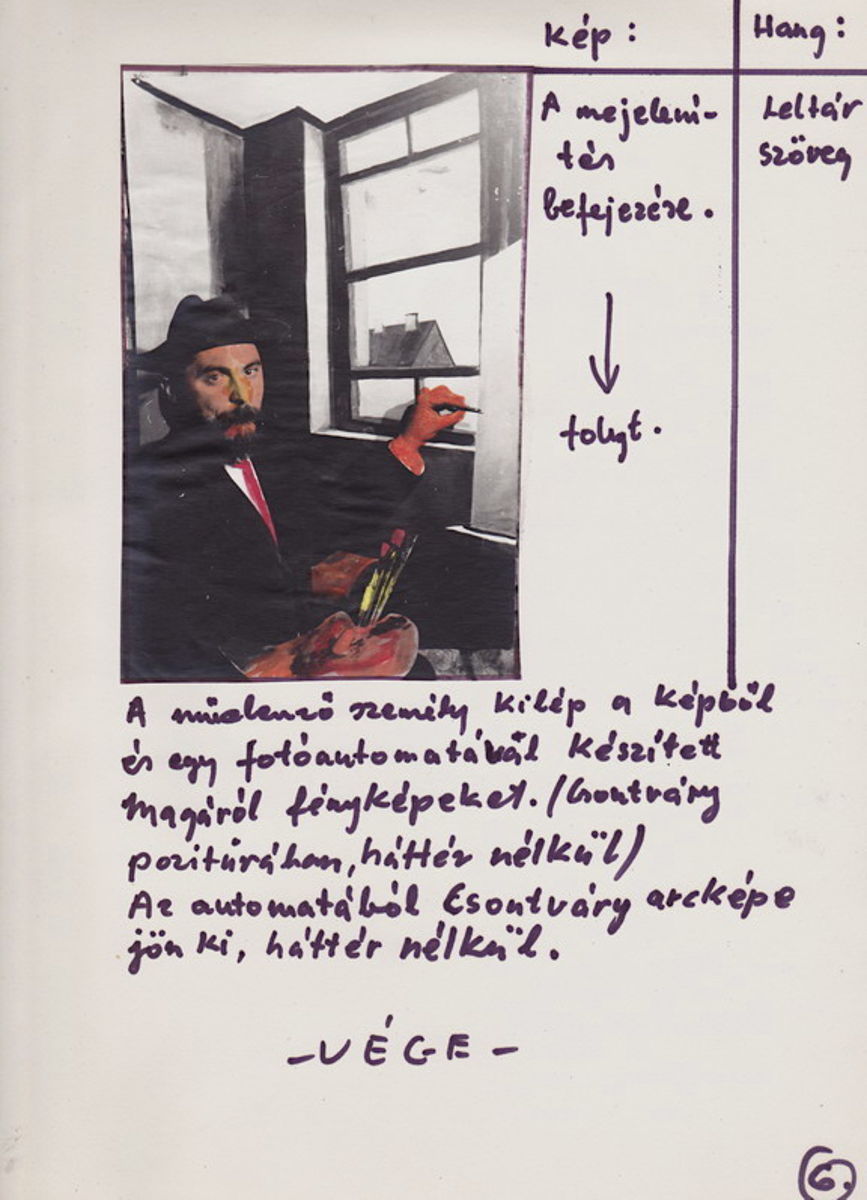 Kép :
Hang :
A mejelení-
tés
befejezése.
Leltár
szöveg
folyt.
A műelemző személy kilép a képből
és egy fotóautomatával készített
magáról fényképeket. (Csontváry
pozitúrában, háttér nélkül)
Az automatából Csontváry arcképe
jön ki, háttér nélkül.
- VÉGE -
6.